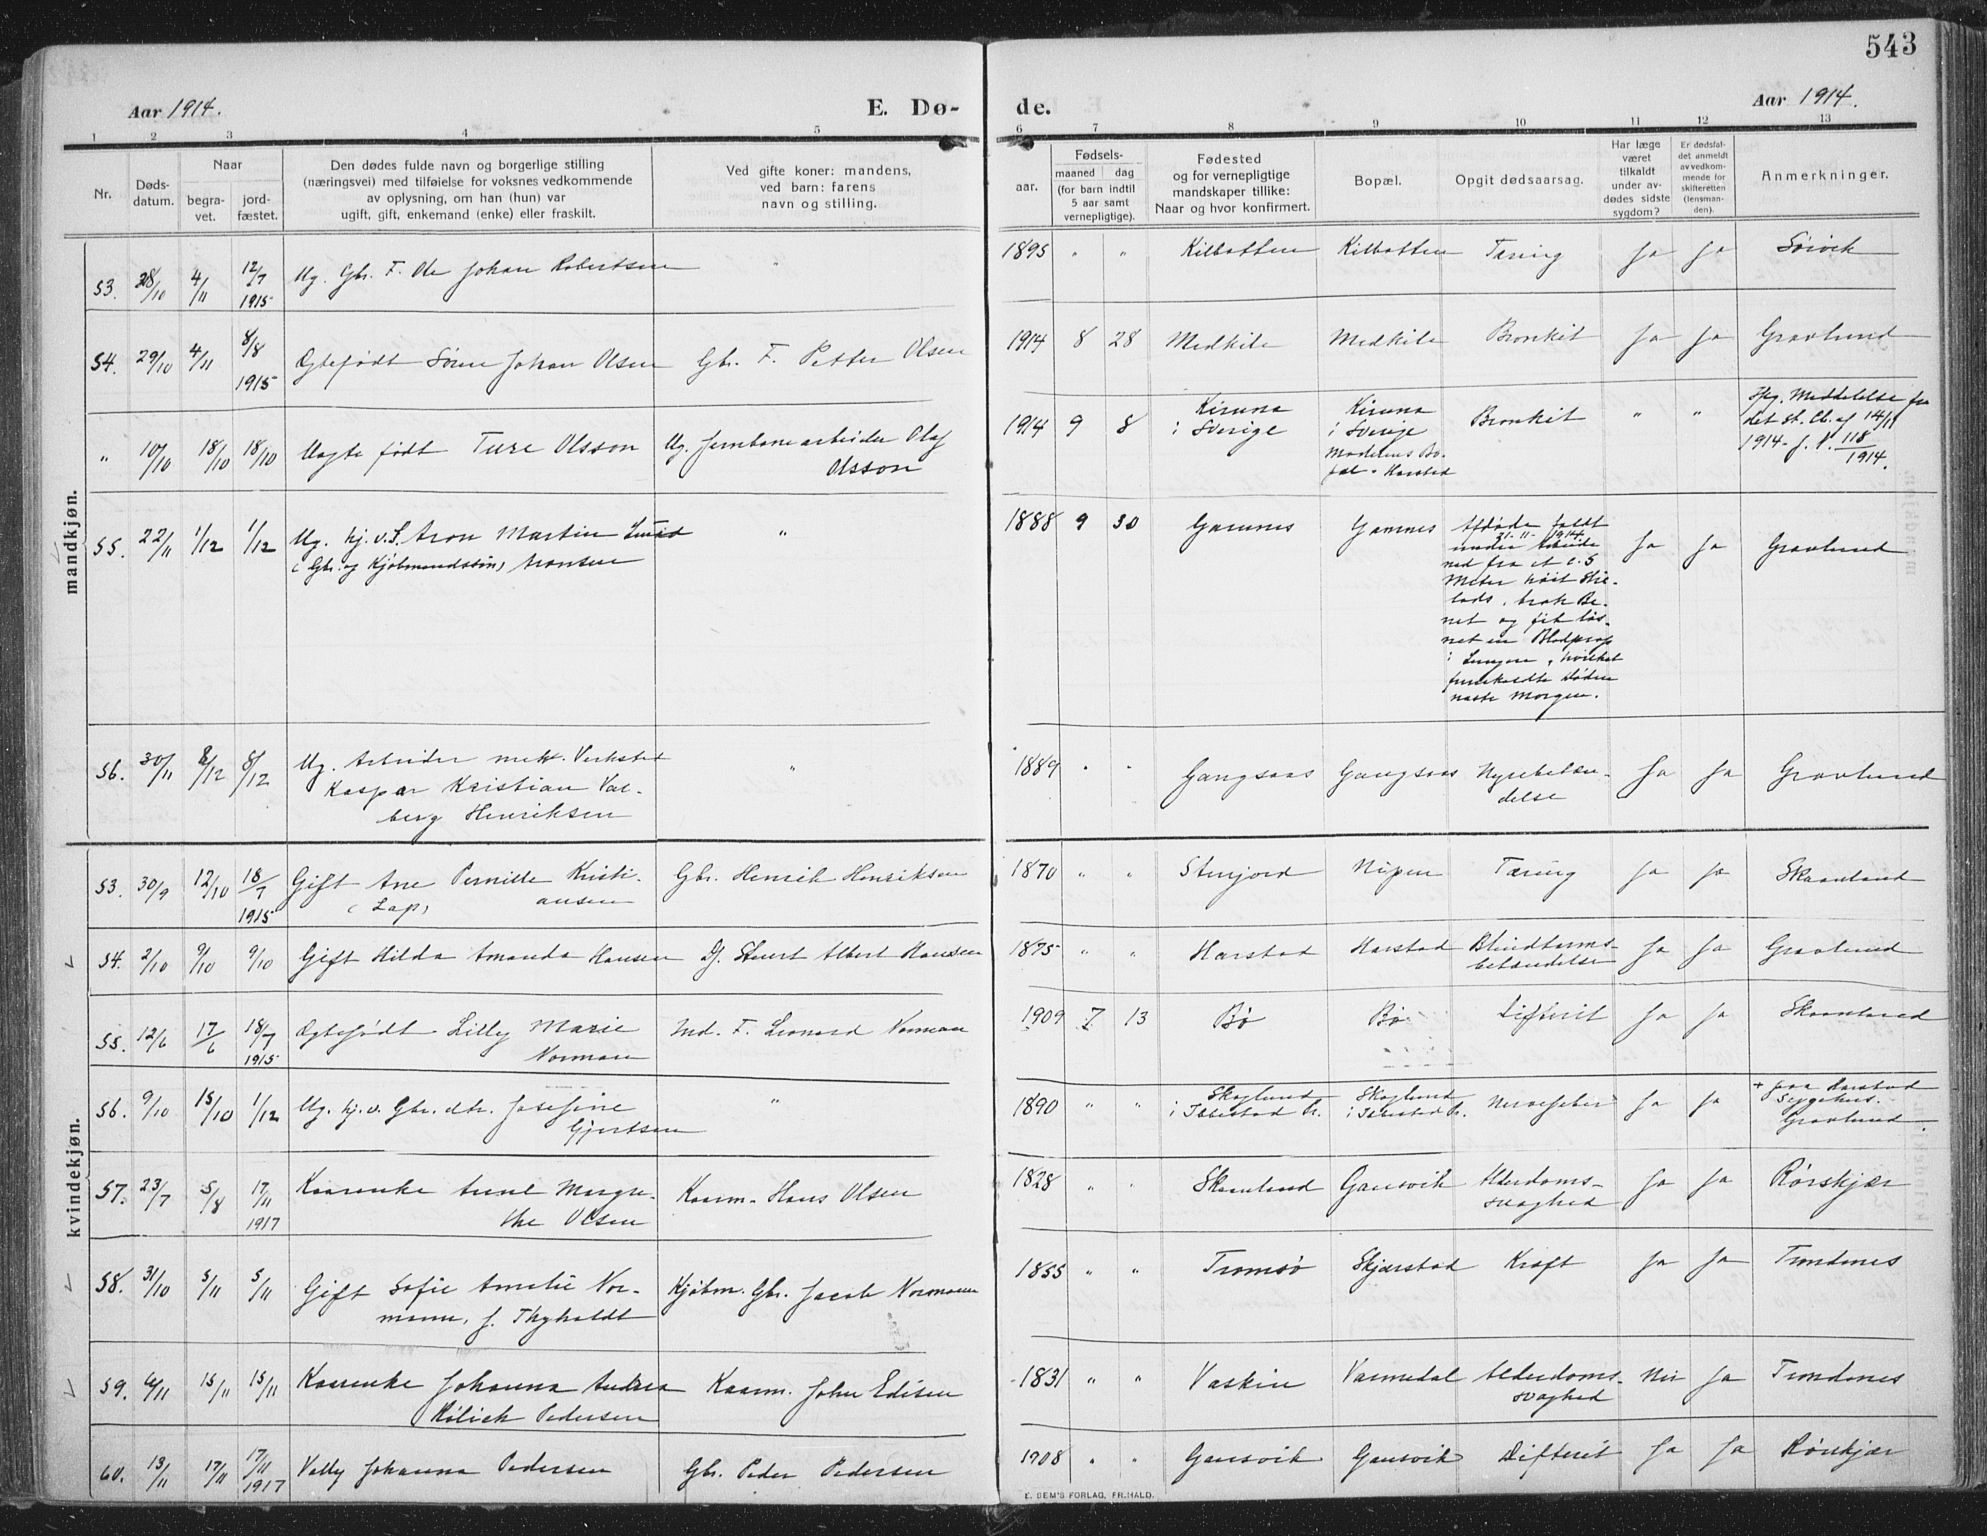 543
Aar 1914.
E. Dø-
de.
Aar 1914.
1 2 3 4 5 6 7 8 9 10 11 12 13
Nr.
Døds-
datum.
Naar
begra-
vet.
jord-
fæstet.
Den dødes fulde navn og borgerlige stilling
(næringsvei) med tilføielse for voksnes vedkommende
av oplysning, om han (hun) var
ugift, gift, enkemand (enke) eller fraskilt.
Ved gifte koner: mandens,
ved barn: farens
navn og stilling.
Fødsels-
aar.
maaned dag
(for barn indtil
5 aar samt
vernepligtige).
Fødested
og for vernepligtige
mandskaper tillike:
Naar og hvor konfirmert.
Bopæl.
Opgit dødsaarsag.
Har læge
været
tilkaldt
under av-
dødes sidste
sygdom?
Er dødsfal-
det anmeldt
av vedkom-
mende for
skifteretten
(lensman-
den).
Anmerkninger.
mandkjøn.
53. 28/10 4/11 12/7 1915 Ug. Gbr. F. Ole Johan Robertsen " 1895 " " Kilbotten Kilbotten Tæring Ja Ja Sørvik
54. 29/10 4/11 8/8 1915 Egtefødt Sören Johan Olsen Gbr. F. Petter Olsen 1914 8 28 Medkile Medkile Bronkit Ja Ja Gravlund
" 10/10 18/10 18/10 Uegte født Ture Olsson Ug. Jernbanearbeider Olaf
Olsson
1914 9 8 Kiruna
i Sverige
Kiruna
i Sverige
Moderens Bo-
pæl - Harstad
Bronkit " "
Meddelelse fra
det st. Cb. af 14/11
1914 - J. N. 118/1914.
55. 22/11 1/12 1/12 Ug. hj. v. S. Aron Martin
(Gbr. og Kjøbmandssøn) Aronsen
" 1888 9 30 Gamnes Gamnes
Afdøde faldt
21-11-1914
under Arbeide
ned fra et c. 5
Meter höit Stil-
lads, brak Be-
net og fik løs-
net en Blodprop
i Lungen, hvilket
foraarsagede Døden
næste Morgen.
Ja Ja Gravlund
56. 30/11 8/12 8/12 Ug. Arbeider mek. Verksted
Kaspar Kristian Val-
berg Henriksen
" 1889 " " Gangsaas Gangsaas Nyrebetæn-
delse
Ja Ja Gravlund
kvindekjøn.
53. 30/9 12/10 18/7 1915 Gift Ane Pernille Kristi-
(Lap) ansen
Gbr. Henrik Henriksen 1870 " " Stenjord Nipen Tæring Ja Ja Skaanland
54. 2/10 9/10 9/10 Gift Hilda Amanda Hansen Albert Hansen 1875 " " Harstad Harstad Blindtarms-
betændelse
Ja Ja Gravlund
55. 12/6 17/6 18/7 1915 Egtefødt Lilly Marie
Norman
Ind. F. Leonard Norman 1909 7 13 Bø Bø Difterit Ja Ja Skaanland
56. 9/10 15/10 1/12 Ug. hj. v. Gbr. dtr. Josefine
Gjertsen
" 1890 " " Skoglund
i Ibbestad
Skoglund
i Ibbestad
Nervefeber Ja Ja
+ paa Harstad
Sygehus.
Gravlund.
57. 23/7 5/8 17/11 1917 Kaarenke Anne Margre-
the Olsen
Kaarm. Hans Olsen 1828 " " Skaanland Gansvik Alderdoms-
svaghed
Ja Ja Rørskjær
58. 31/10 5/11 5/11 Gift Sofie Amelie Nor-
mann, f. Thyholdt
Kjøbm. Gbr. Jacob Normann 1855 " " Tromsø Skjærstad Kræft Ja Ja Trondenes
59. 6/11 15/11 15/11 Kaarenke Johanna Andrea
Kølich Pedersen
Kaarm. John Edisen 1831 " " Vaskin Varmedal Alderdoms-
svaghed
Nei Ja Trondenes
60. 13/11 17/11 17/11 1917 Vally Johanna Pedersen Gbr. Peder Pedersen 1908 " " Gansvik Gansvik Difterit Ja Ja Rørskjær
E. SEM'S FORLAG, FR.HALD.